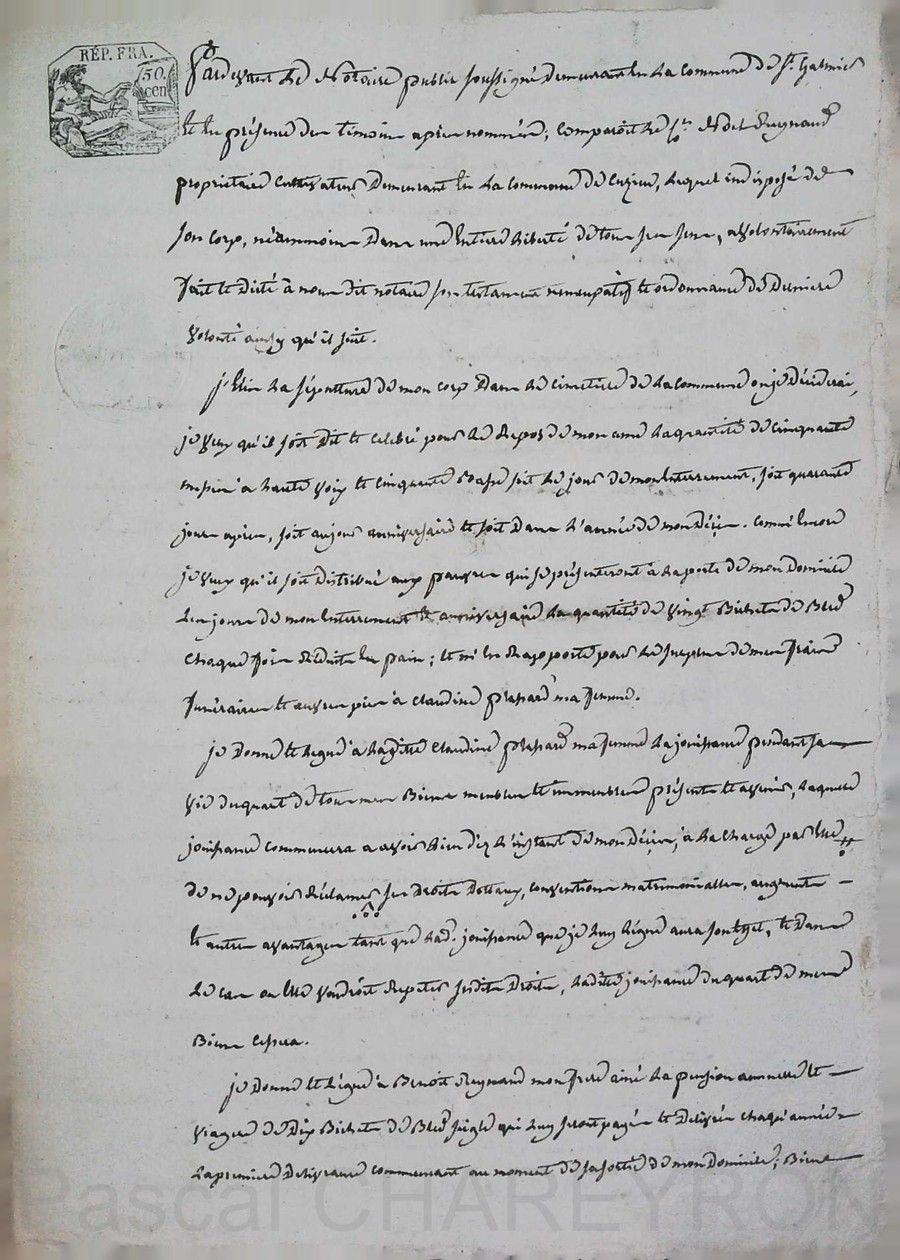 RÉP. FRA.
50.
cen
Pardevant le Notaire public soussigné demeurant en la commune de St. Galmier
et en présence des témoins après nommés; comparoit le Sr. Noël Reynaud
propriétaire cultivateur demeurant en la commune de Cuzieu, lequel indisposé de
son corp, néammoins dans une entière liberté de tous ses sens, a volontairement
fait et dicté à nous dit notaire son testament nuncupatif et ordonnance de dernière
volonté ainsy qu'il suit.
j'élis la sépulture de mon corp dans le cimetière de la commune ou je déciderai,
je veux qu'il soit dit et celebré pour le repos de mon ame la quantité de cinquante
messes à haute voix et cinquante basse soit le jour de mon enterrement, soit quarante
jours après, soit au jour anniversaire et soit dans l'année de mon décès. comme encore
je veux qu'il soit distribué aux pauvres qui se présenteront à la porte de mon domicile
les jours de mon enterrement et anniversaire la quantité de vingt Bichets de Bled
chaque fois réduite en pain; et m'en rapporte pour le surplus de mes frais
funéraires et œuvres pies à Claudine ma femme.
je donne et lègue à ladite Claudine ma femme la jouissance pendant sa
vie du quart de tous mes Biens meubles et immeubles présents et avenir, laquelle
jouissance commencera a avoir lieu dez l'instant de mon décès, à la charge par elle #
de ne pouvoir réclamer ses droits dottaux, conventions matrimonialles, augments
et autres avantages tant que lad. jouissance que je luy lègue aura son effet, et dans
le cas ou elle voudroit repeter sesdits droits, ladite jouissance du quart de mesd
Biens cessera.
je donne et lègue à Benoit Reynaud mon frere ainé la pension annuelle et
viagere de dix Bichets de Bled seigle qui luy seront payés et délivrés chaque année
la premiere délivrance commencant au moment de sa sortie de mon domicile; Biens
Pascal CHAREYRON